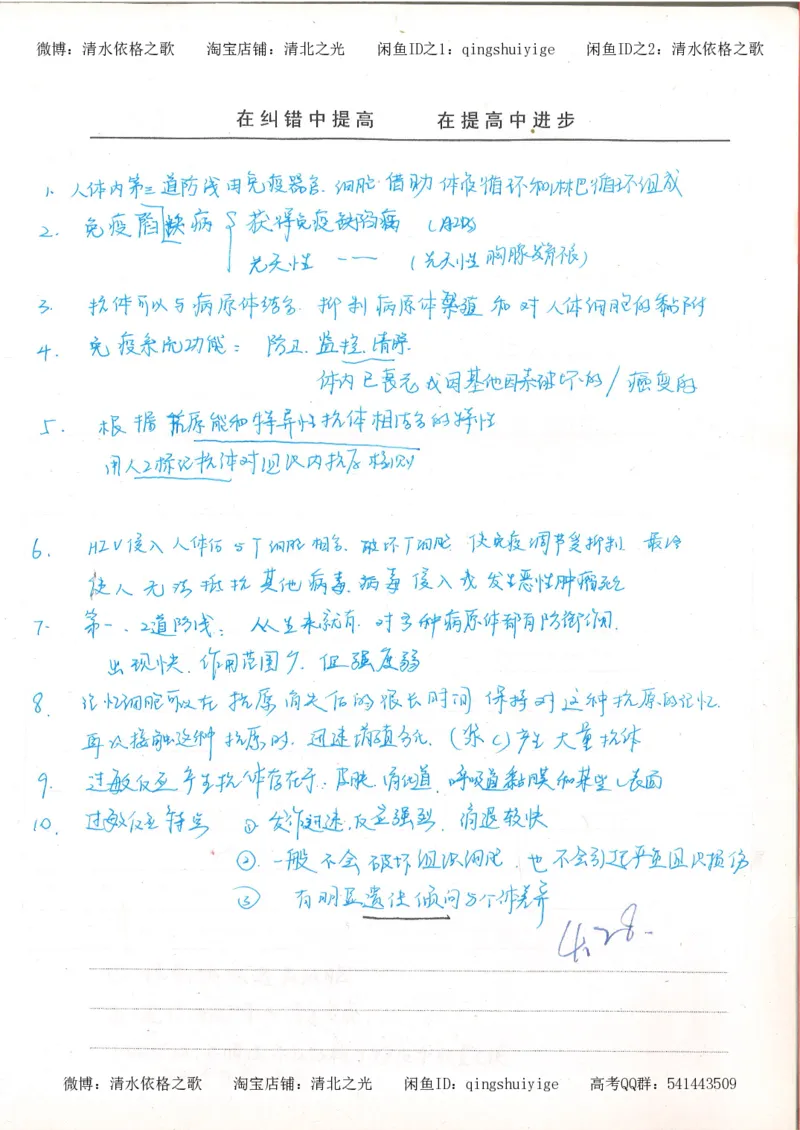 微博：清水依格之歌 淘宝店铺：清北之光 闲鱼ID之1：qingshuiyige 闲鱼ID之2：清水依格之歌
在纠错中提高 在提高中进步
1. 人体内第三道防线由免疫器官、细胞 借助 体液循环和淋巴循环组成
2. 免疫陷缺病 { 获得免疫缺陷病 (AIDS)
先天性 —— (先天性胸腺发育不良)
3. 抗体可以与病原体结合、抑制病原体繁殖 和 对人体细胞的黏附
4. 免疫系统功能：防卫、监控、清除
体内已衰老或因其他因素破坏的/癌变的
5. 根据 抗原能和特异性抗体相结合的特性
用人工标记抗体对组织内抗原检测
6. HIV侵入人体后与T细胞相结合、破坏T细胞 使免疫调节受抑制 最终
使人无法抵抗其他病毒、病毒侵入或发生恶性肿瘤死亡
7. 第一、2道防线：从生来就有、对多种病原体都有防御作用.
出现快、作用范围广、但强度弱
8. 记忆细胞可以在抗原消失后的很长时间保持对这种抗原的记忆.
再次接触这种抗原时、迅速增殖分化、(浆C)产生大量抗体
9. 过敏反应产生抗体存在于：皮肤、消化道、呼吸道黏膜和某些C表面
10. 过敏反应特点 ① 发作迅速、反应强烈、消退较快
② 一般不会破坏组织细胞、也不会引起严重组织损伤
③ 有明显遗传倾向与个体差异
4.28.
微博：清水依格之歌 淘宝店铺：清北之光 闲鱼ID：qingshuiyige 高考QQ群：541443509